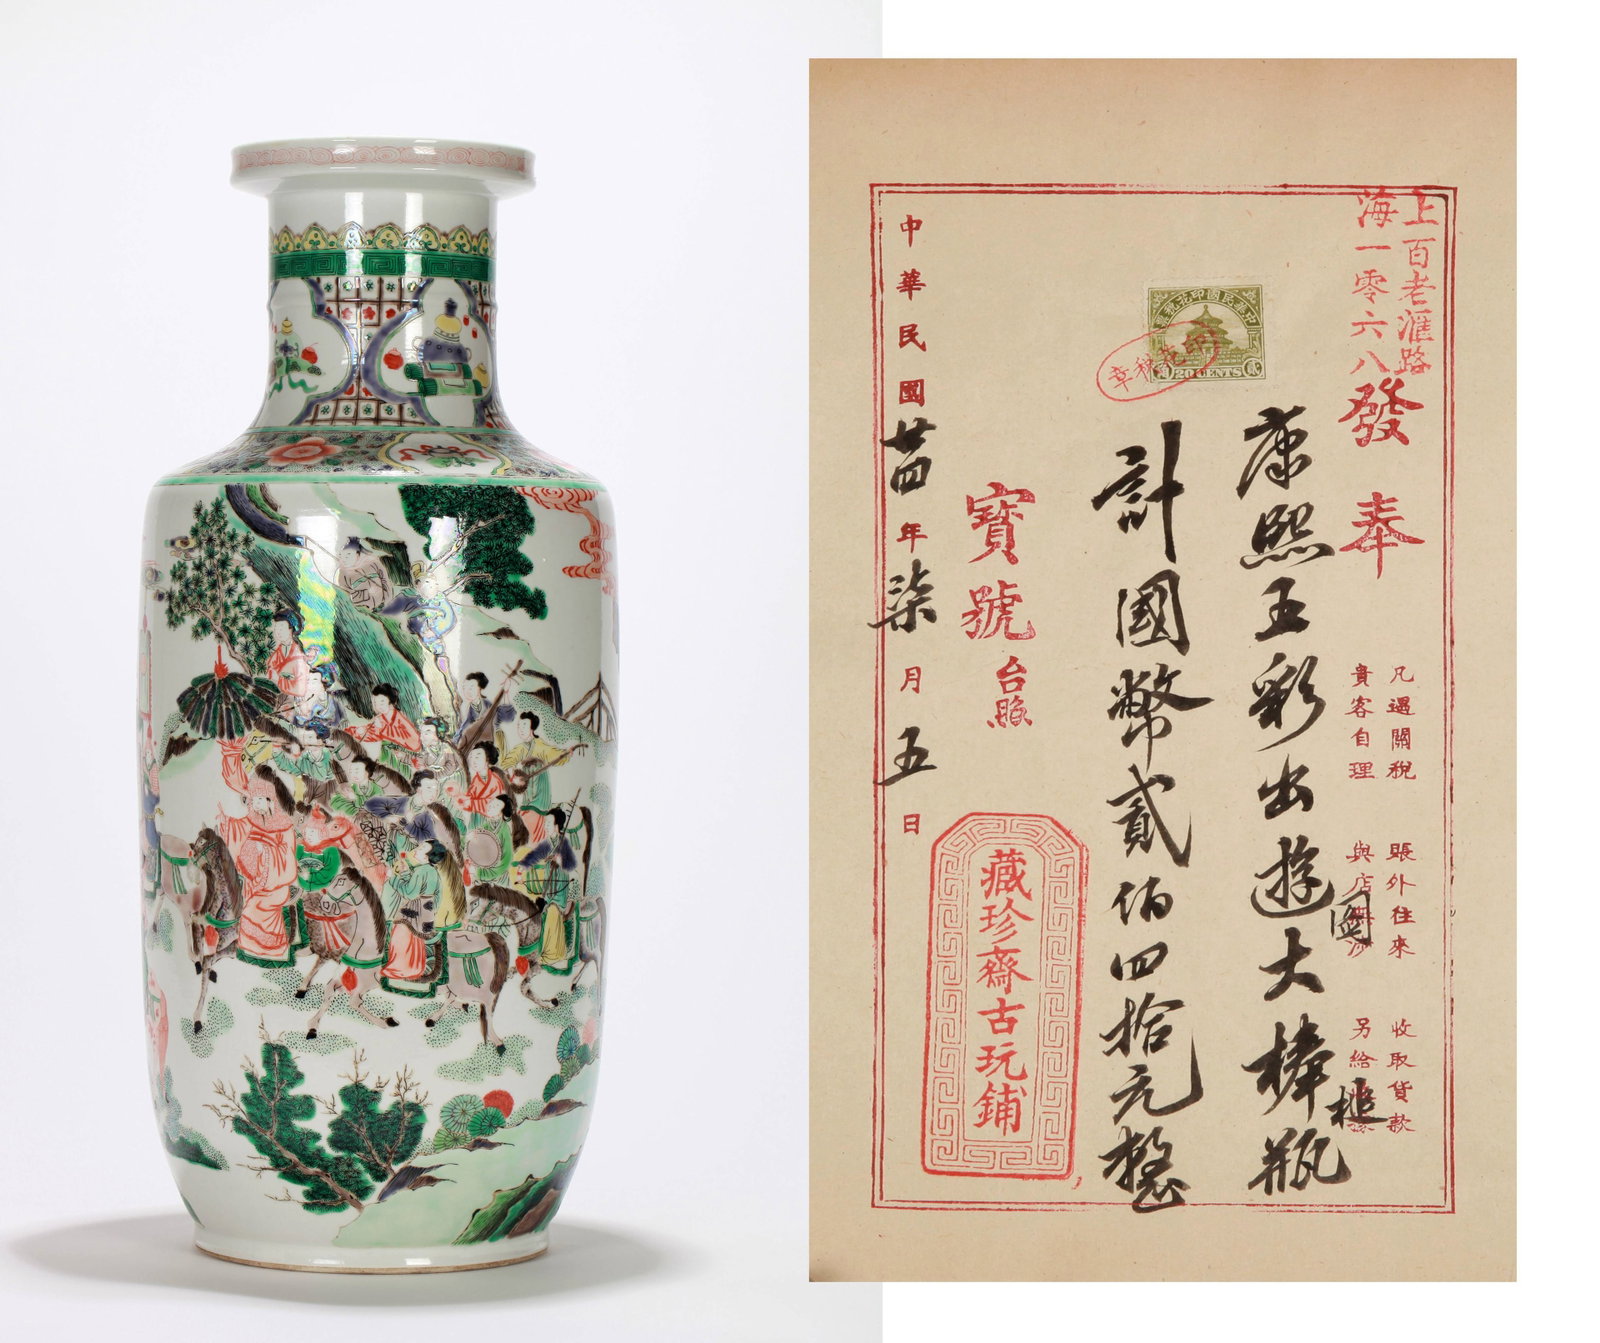 上海
百老滙路
一零六八
發奉
凡遇關稅
貴客自理
賬外往來
與店無涉
收取貨款
另給
康熙五彩出游圖大棒槌瓶
中華民國印花稅票
貳角
20 CENTS
印花稅章
計國幣貳佰四拾元整
寶號
台照
藏珍齋古玩鋪
中華民國廿四年柒月五日